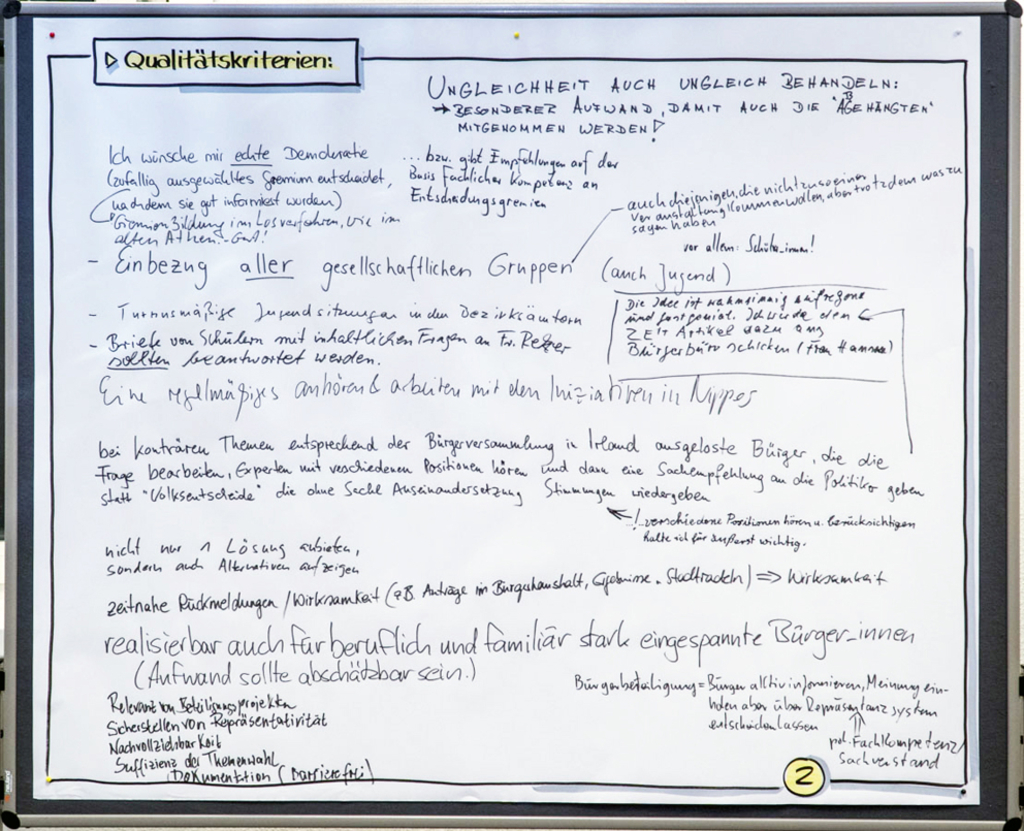 ▷ Qualitätskriterien:
UNGLEICHHEIT AUCH UNGLEICH BEHANDELN:
→ BESONDERER AUFWAND, DAMIT AUCH DIE "ABGEHÄNGTEN"
MITGENOMMEN WERDEN!
Ich wünsche mir echte Demokratie
(zufällig ausgewähltes Gremium entscheidet,
nachdem sie gut informiert wurden)
im Losverfahren, wie im
alten Athen. Gut!
... bzw. gibt Empfehlungen auf der
Basis fachlicher Kompetenz an
Entscheidungsgremien
auch diejenigen, die nicht zu so einer
Veranstaltung kommen wollen, aber trotzdem was zu
sagen haben
vor allem: Schüler_innen!
- Einbezug aller gesellschaftlichen Gruppen (auch Jugend)
- Turnusmäßige Jugendsitzungen in den Bezirksämtern
- Briefe von Schülern mit inhaltlichen Fragen an Fr. Reker
sollten beantwortet werden.
Die Idee ist wahnsinnig aufregend
und fast genial. Ich würde den
ZEIT Artikel dazu ans
Bürgerbüro schicken (Frau)
Eine regelmäßiges anhören & arbeiten mit den Iniziativen in Nippes
bei konträren Themen entsprechend der Bürgerversammlung in Irland ausgeloste Bürger, die die
Frage bearbeiten, Experten mit verschiedenen Positionen hören und dann eine Sachempfehlung an die Politiker geben
statt "Volksentscheide" die ohne Sachl. Auseinandersetzung Stimmungen wiedergeben
! verschiedene Positionen hören u. berücksichtigen
halte ich für äußerst wichtig.
nicht nur 1 Lösung anbieten,
sondern auch Alternativen aufzeigen
zeitnahe Rückmeldungen / Wirksamkeit (z.B. Anträge im Bürgerhaushalt, Ergebnisse Stadtradeln) ⇒ Wirksamkeit
realisierbar auch für beruflich und familiär stark eingespannte Bürger_innen
(Aufwand sollte abschätzbar sein.)
Relevanz von Beteiligungsprojekten
Sicherstellen von Repräsentativität
Nachvollziehbarkeit
Suffizienz der Themenwahl
Dokumentation (barrierefrei)
Bürgerbeteiligung = Bürger aktiv informieren, Meinung ein-
holen aber über Repräsentanzsystem
entscheiden lassen
⇑
pol. Fachkompetenz/
Sachverstand
2